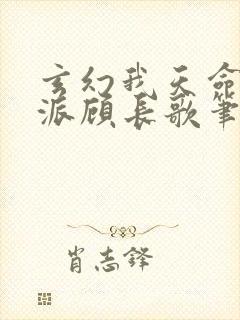 玄幻我天命
派顾长歌笔
肖志铎